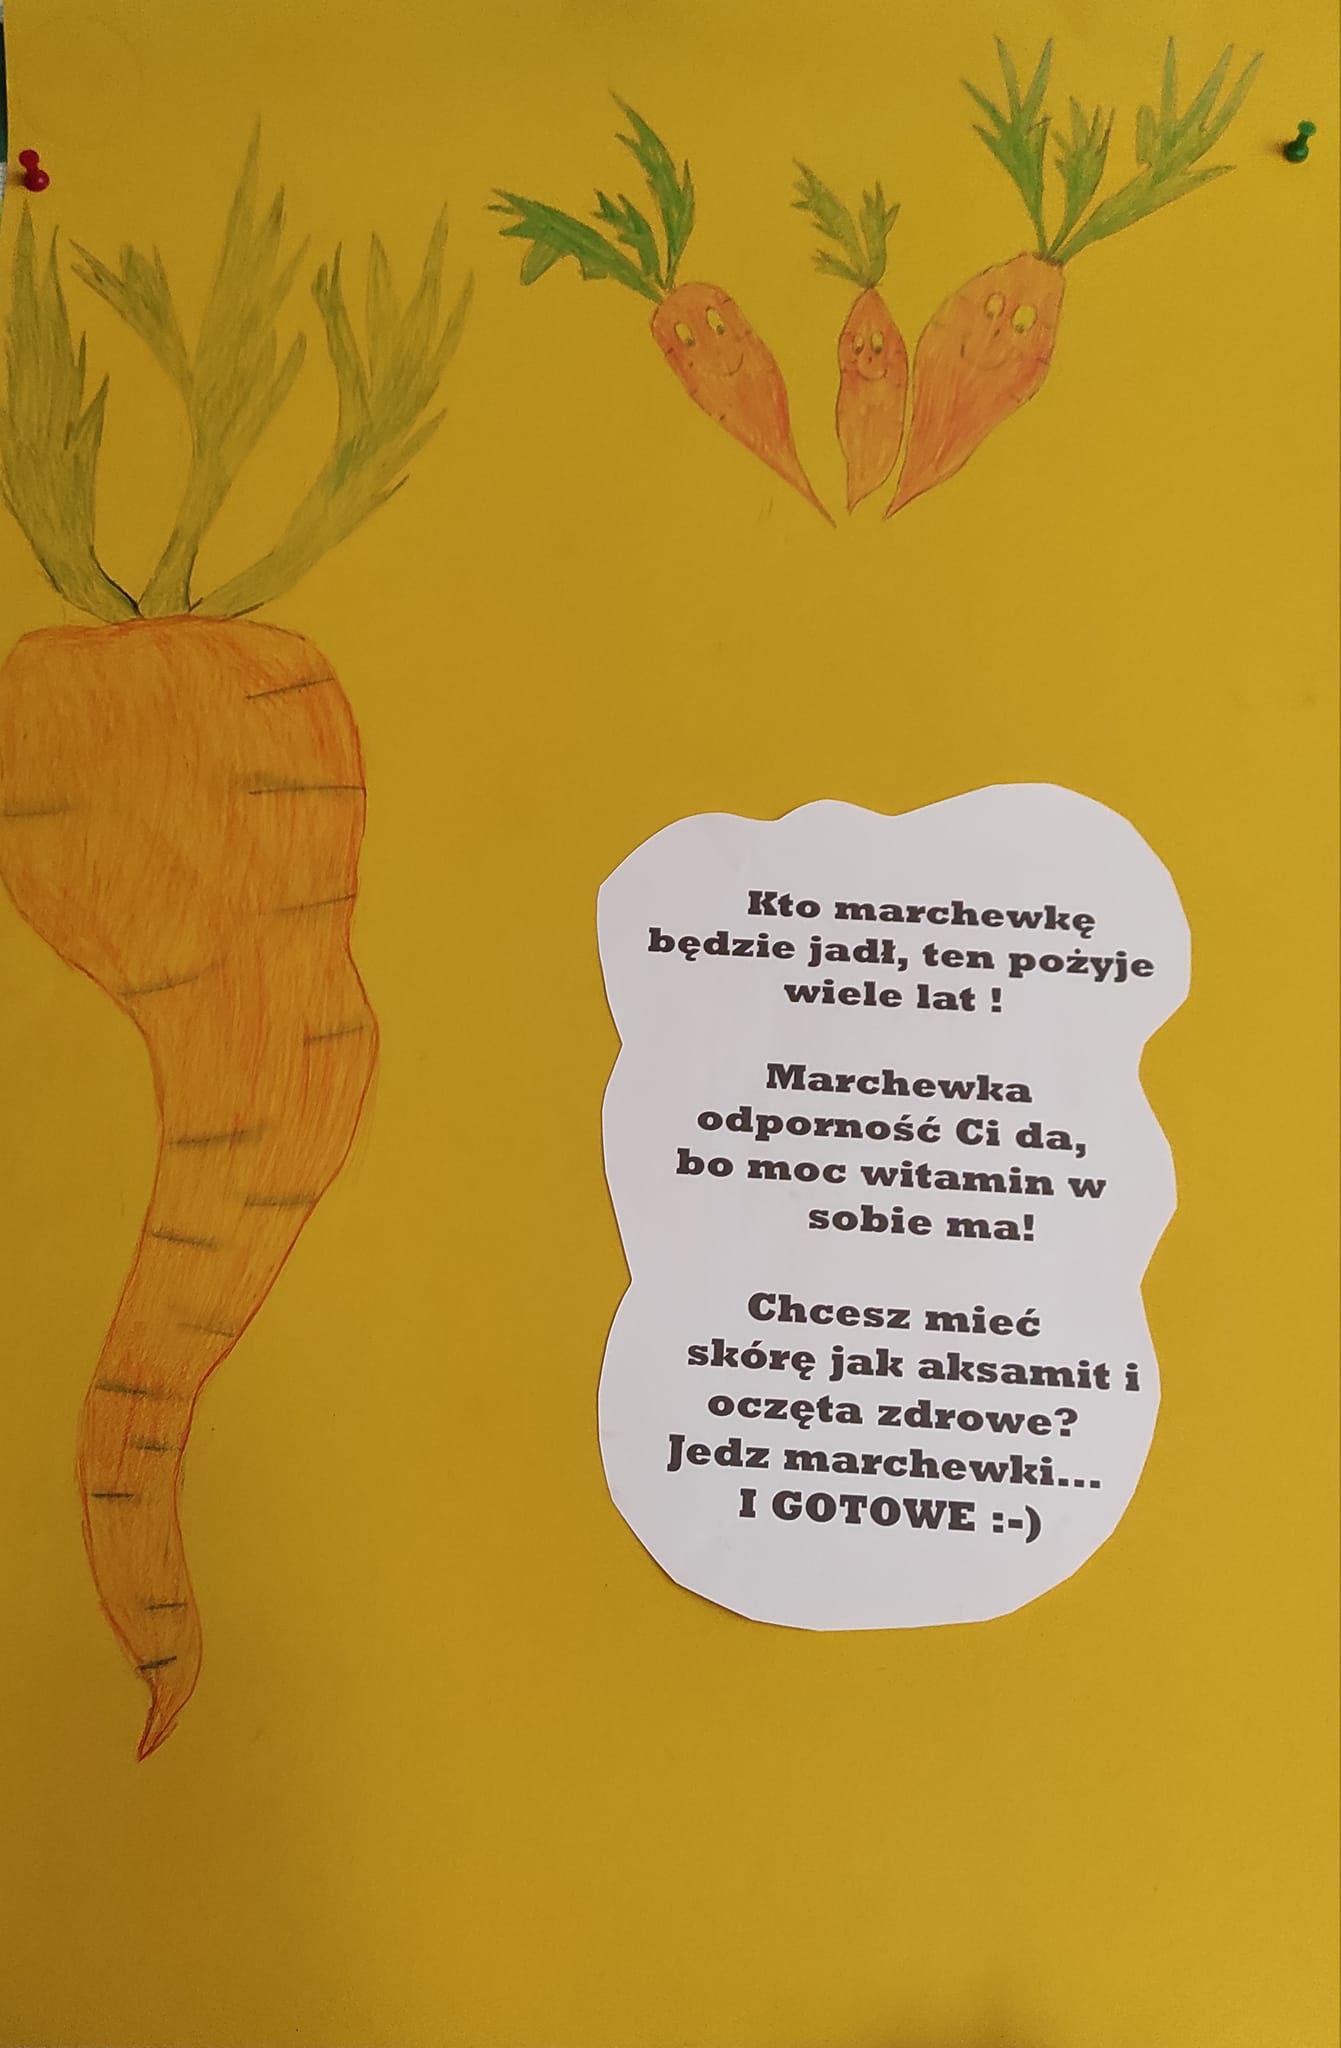 Kto marchewkę
będzie jadł, ten pożyje
wiele lat !
Marchewka
odporność Ci da,
bo moc witamin w
sobie ma!
Chcesz mieć
skórę jak aksamit i
oczęta zdrowe?
Jedz marchewki...
I GOTOWE :-)